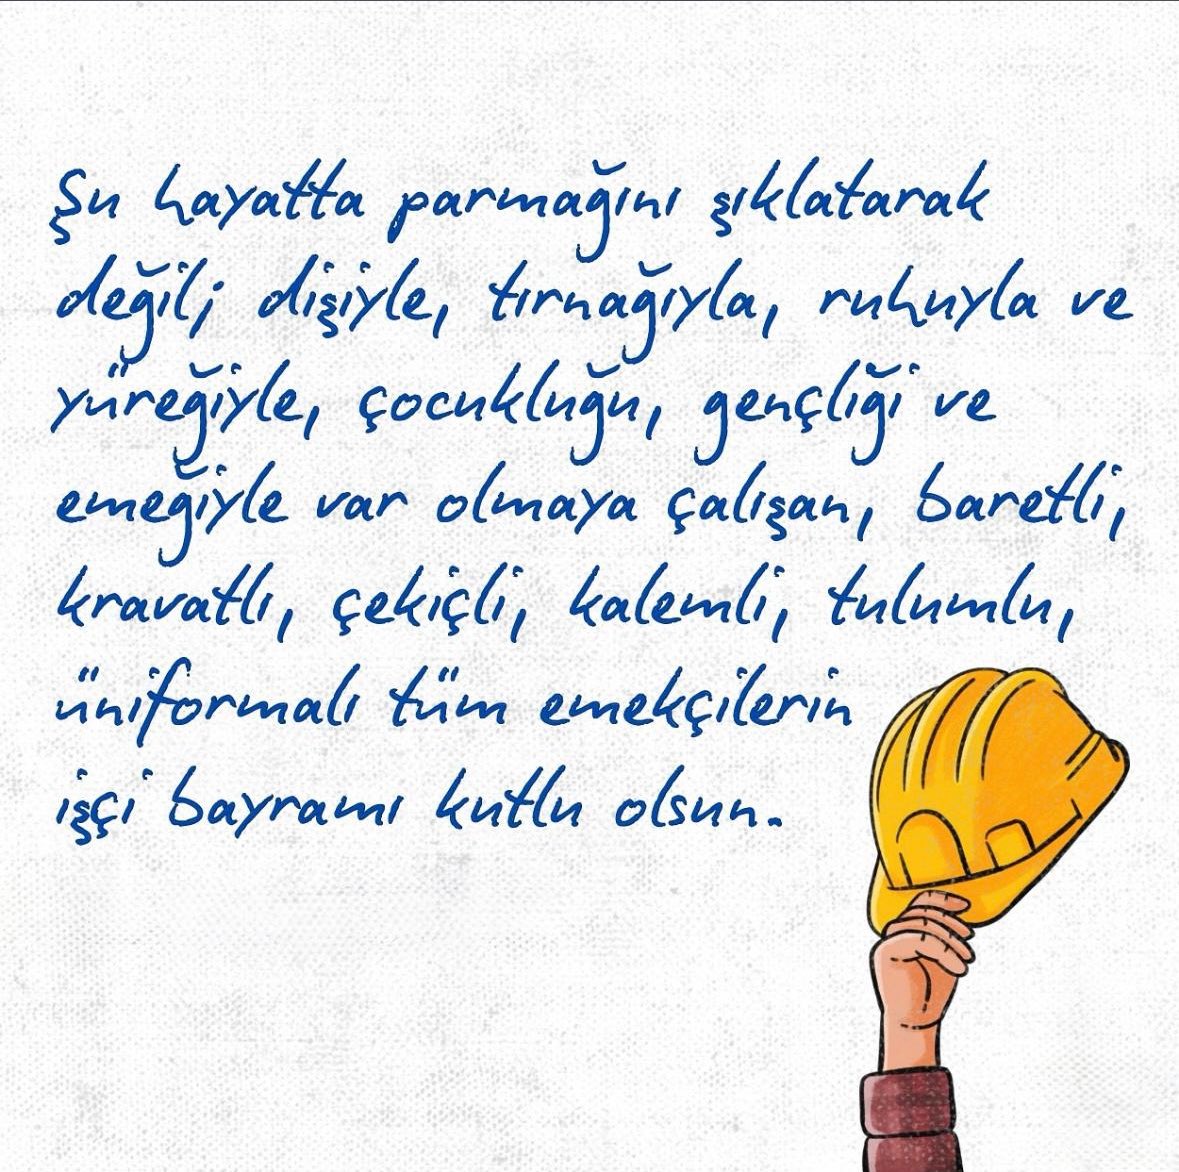 Şu hayatta parmağını şıklatarak
değil; dişiyle, tırnağıyla, ruhuyla ve
yüreğiyle, çocukluğu, gençliği ve
emeğiyle var olmaya çalışan, baretli,
kravatlı, çekiçli, kalemli, tulumlu,
üniformalı tüm emekçilerin
işçi bayramı kutlu olsun.